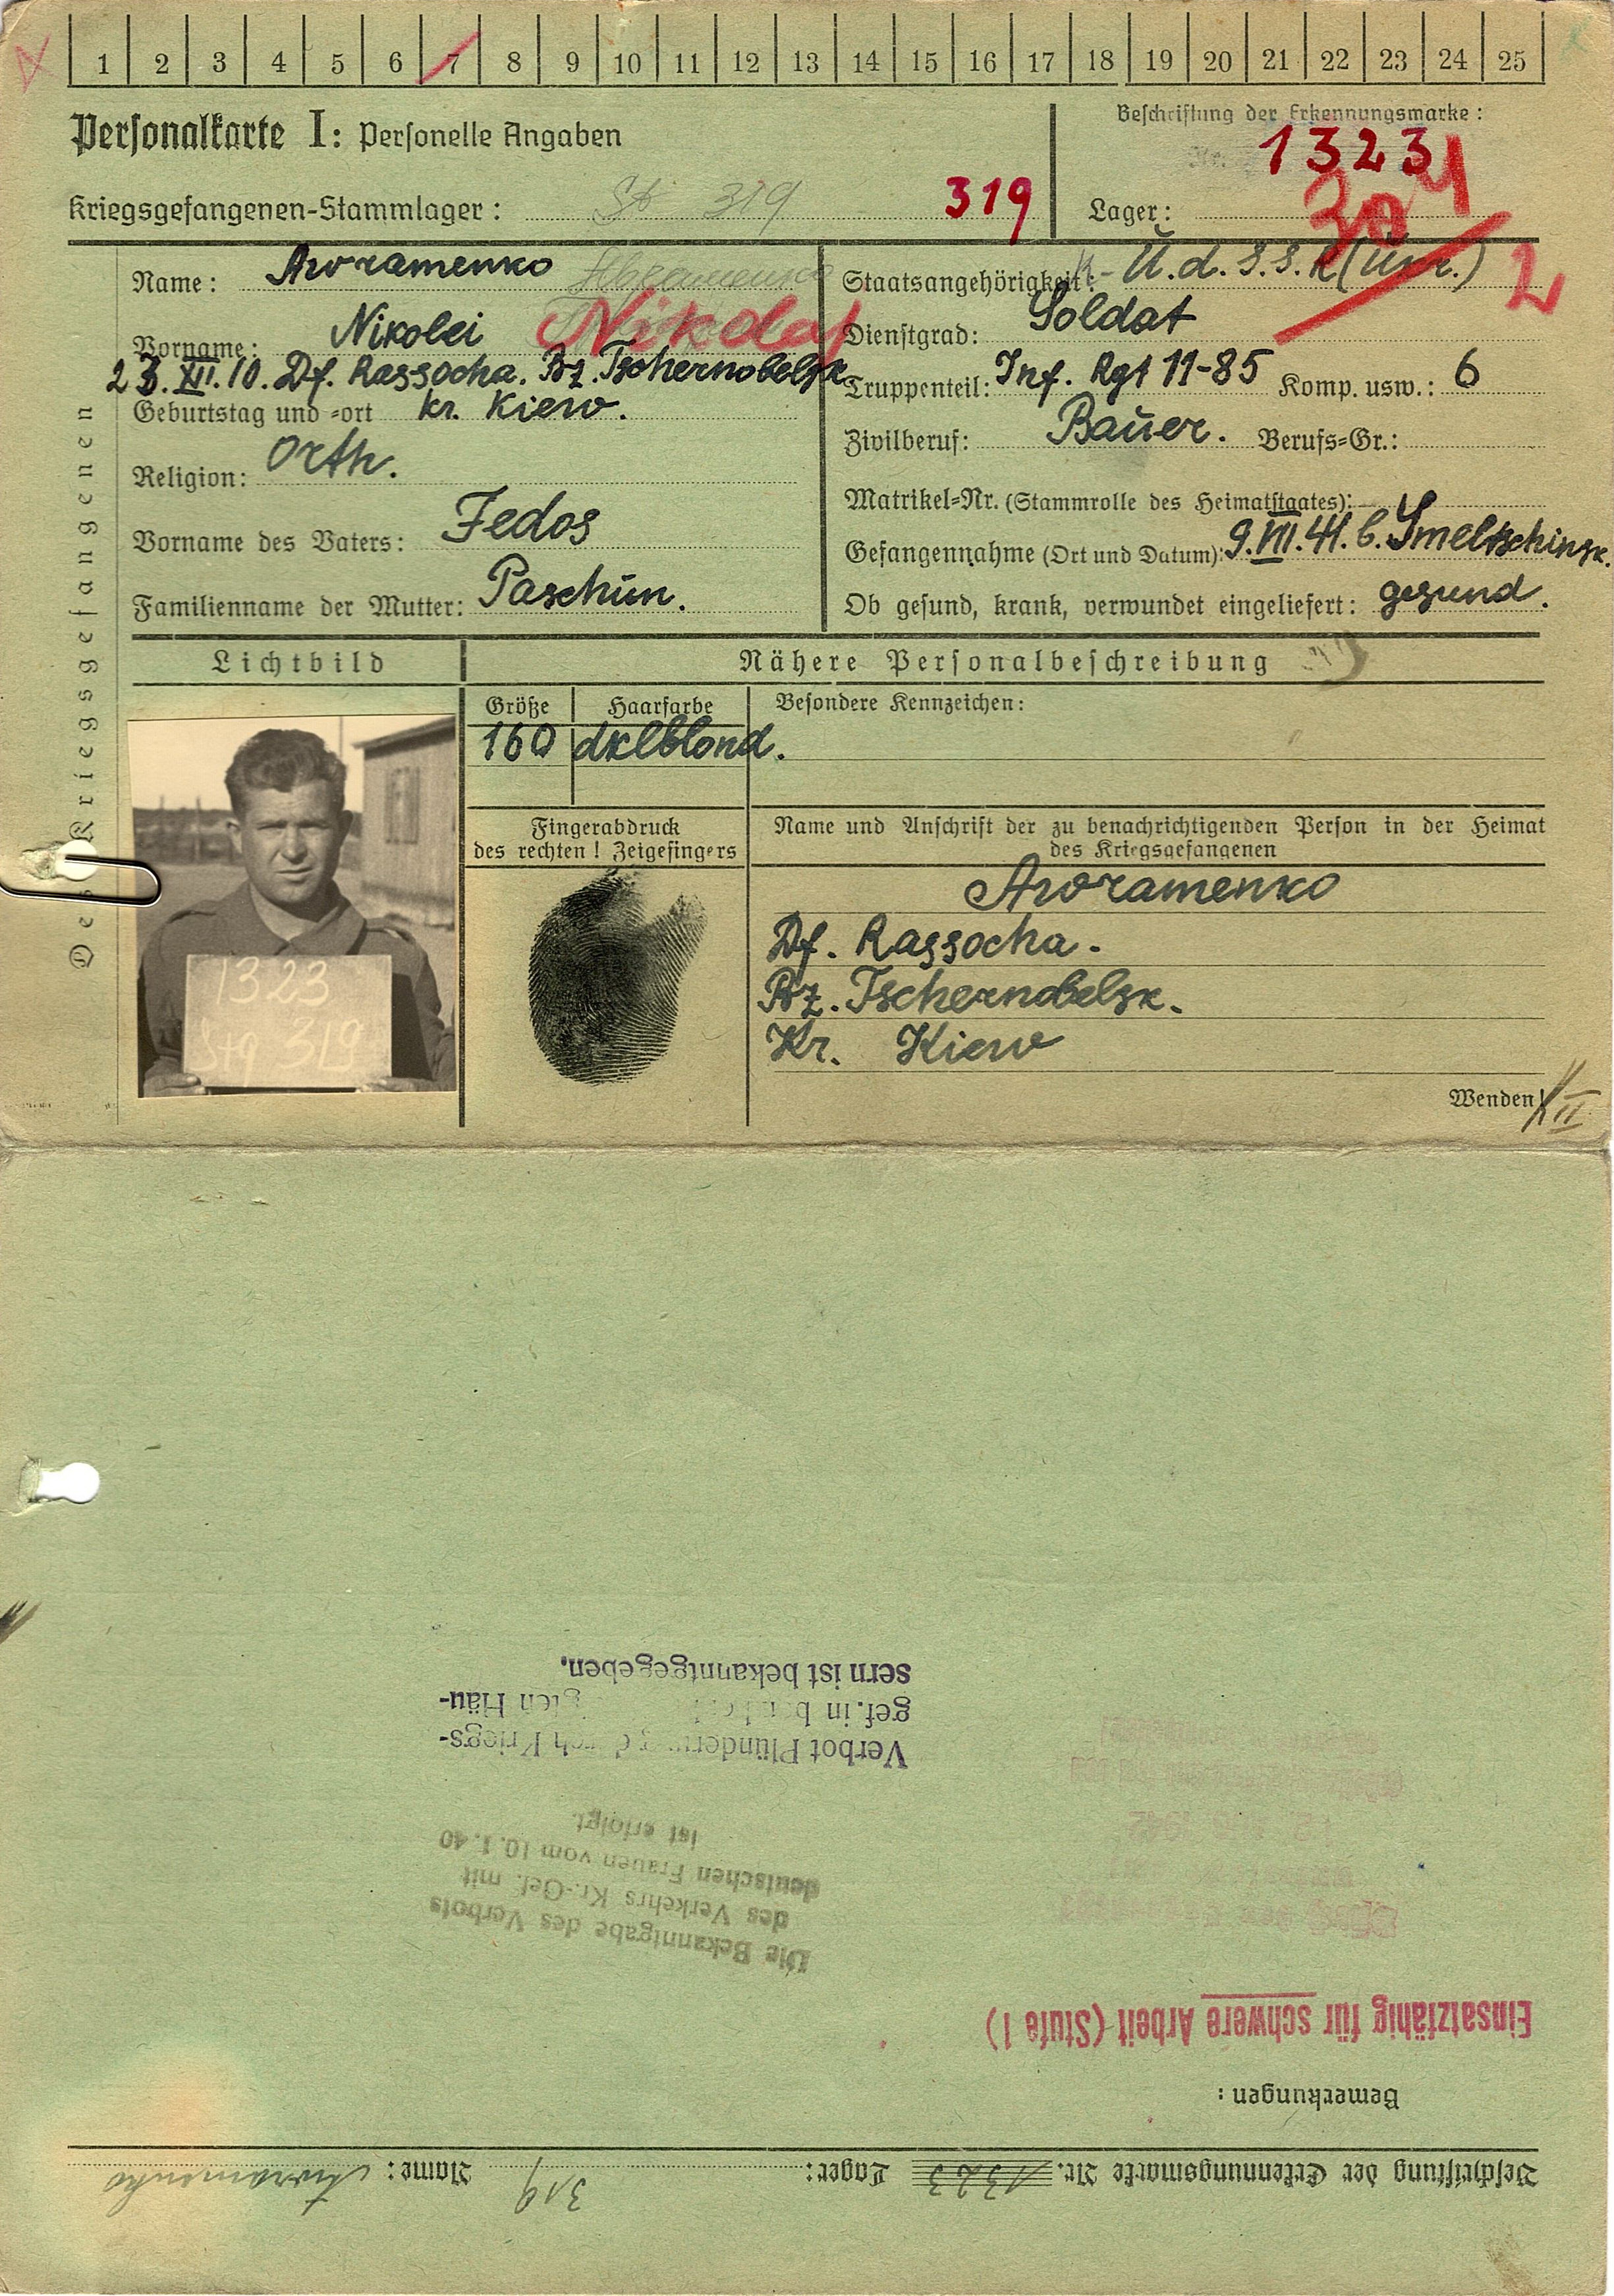 1 2 3 4 5 6 7 8 9 10 11 12 13 14 15 16 17 18 19 20 21 22 23 24 25
Personalkarte I: Personelle Angaben
Beschriftung der Erkennungsmarke:
Nr. 1323
Kriegsgefangenen-Stammlager: St 319 319
Lager: 304
Des Kriegsgefangenen
Name: Awramenko
Vorname: Nikolei Nikolaj
23. XII. 10. Df. Rassocha. Bz. Tschernobelsk
Geburtstag und -ort kr. Kiew.
Religion: Orth.
Vorname des Vaters: Fedos
Familienname der Mutter: Paschun.
Staatsangehörigkeit: U.d.S.S.R (Ukr.) 2
Dienstgrad: Soldat
Truppenteil: Inf. Rgt 11-85 Komp. usw.: 6
Zivilberuf: Bauer. Berufs-Gr.:
Matrikel-Nr. (Stammrolle des Heimatstaates):
Gefangennahme (Ort und Datum): 9.VII.41. b. Smeltschinsk.
Ob gesund, krank, verwundet eingeliefert: gesund.
Lichtbild
Nähere Personalbeschreibung
Größe Haarfarbe Besondere Kennzeichen:
160 dklblond.
Fingerabdruck
des rechten! Zeigefingers
Name und Anschrift der zu benachrichtigenden Person in der Heimat
des Kriegsgefangenen
Awramenko
Df. Rassocha.
Bz. Tschernobelsk.
Kr. Kiew
1323
Stg 319
Wenden!
II
Beschriftung der Erkennungsmarke Nr. 1323 Lager: 319 Name: Awramenko
Bemerkungen:
Einsatzfähig für schwere Arbeit (Stufe 1)
Die Bekanntgabe des Verbots
des Verkehrs Kr.-Gef. mit
deutschen Frauen vom 10.1.40
ist erfolgt.
Verbot Plünderung durch Kriegs-
gef. in Häu-
sern ist bekanntgegeben.